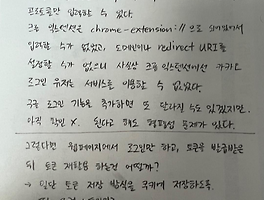 프로토콜만 입력할 수 있다.
크롬 익스텐션은 chrome-extension:// 으로 되어있어서
입력할 수가 없었고, 도메인이나 redirect URI를
설정할 수가 없으니 사실상 크롬 익스텐션에서 카카오
로그인 유저는 서비스를 이용할 수 없었다.
구글 로그인 기능을 추가하면 또 달라질 수도 있겠지만.
아직 확인 X. 된다고 해도 형평성 문제가 있다.
그렇다면 웹페이지에서 로그인만 하고, 토큰을 발급받은
뒤 토큰 재활용 하는건 어떨까?
→ 일단 토큰 저장 방식을 쿠키에 저장하도록.